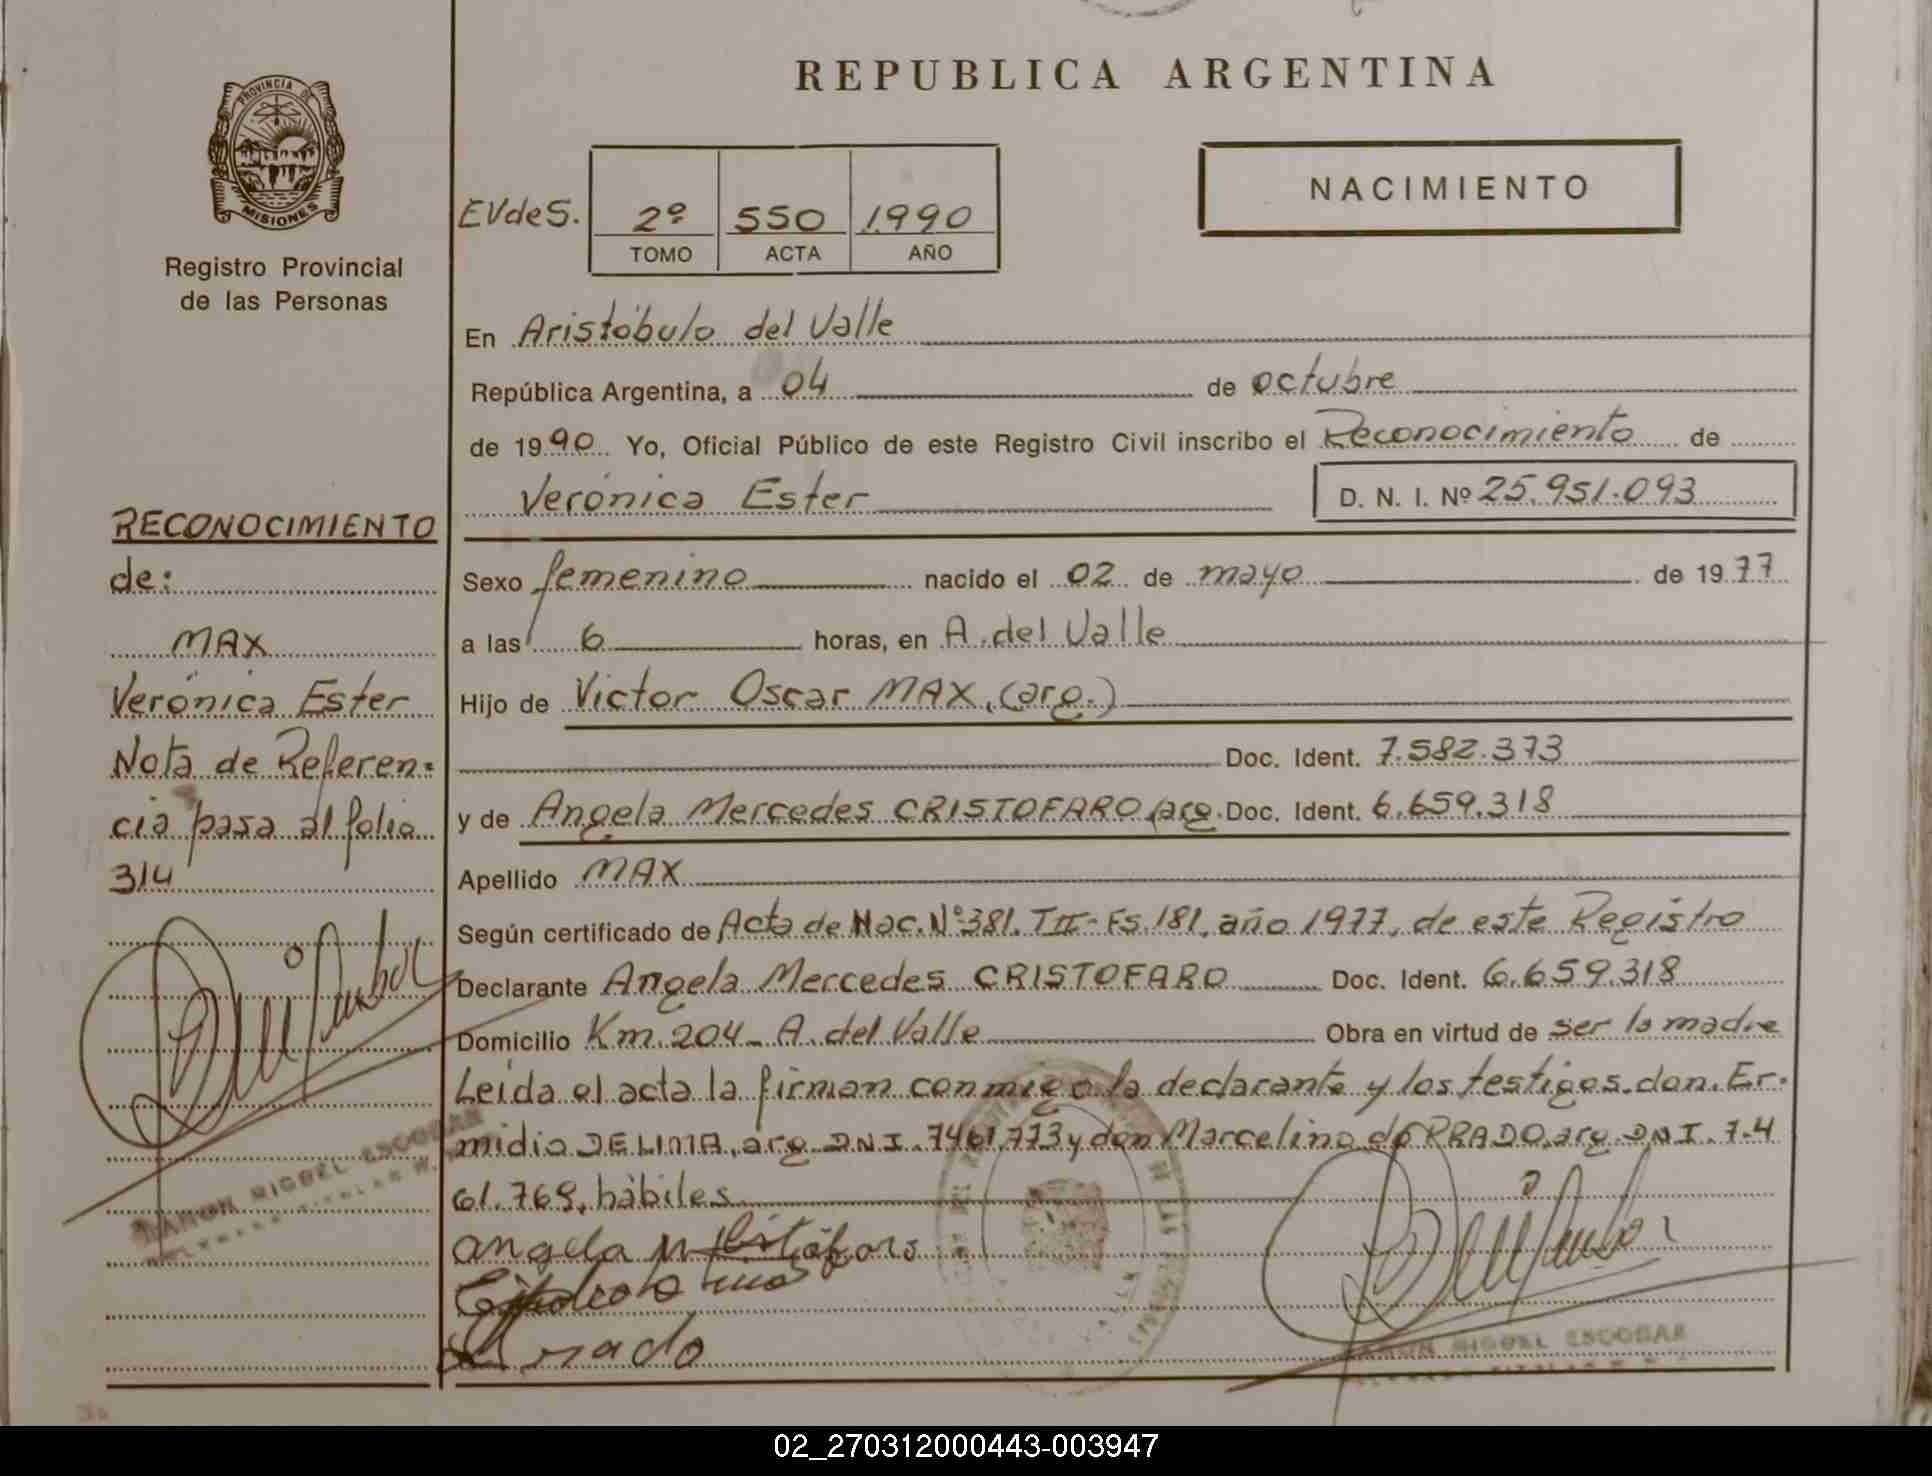 REPUBLICA ARGENTINA
PROVINCIA DE
MISIONES
Registro Provincial
de las Personas
EVdeS.
2º 550 1.990
TOMO ACTA AÑO
NACIMIENTO
En Aristóbulo del Valle
República Argentina, a 04 de octubre
de 1990 Yo, Oficial Público de este Registro Civil inscribo el Reconocimiento de
Verónica Ester D. N. I. Nº 25.951.093
Sexo femenino nacido el 02 de mayo de 1977
a las 6 horas, en A. del Valle
Hijo de Victor Oscar MAX, (arg.)
Doc. Ident. 7.582.373
y de Angela Mercedes CRISTOFARO, arg. Doc. Ident. 6.659.318
Apellido MAX
Según certificado de Acta de Nac. Nº 381. TII - Fs. 181, año 1977, de este Registro
Declarante Angela Mercedes CRISTOFARO Doc. Ident. 6.659.318
Domicilio Km. 204 - A. del Valle Obra en virtud de ser la madre
Leída el acta la firman conmigo la declarante y los testigos don Er-
midio DE LIMA, arg. DNI. 7461.773 y don Marcelino do PRADO, arg. DNI. 7.4
61.769, hábiles
RECONOCIMIENTO
de:
MAX
Verónica Ester
Nota de Referen=
cia pasa al folio
314
RAMON MIGUEL ESCOBAR
angela M
RAMON MIGUEL ESCOBAR
02_270312000443-003947